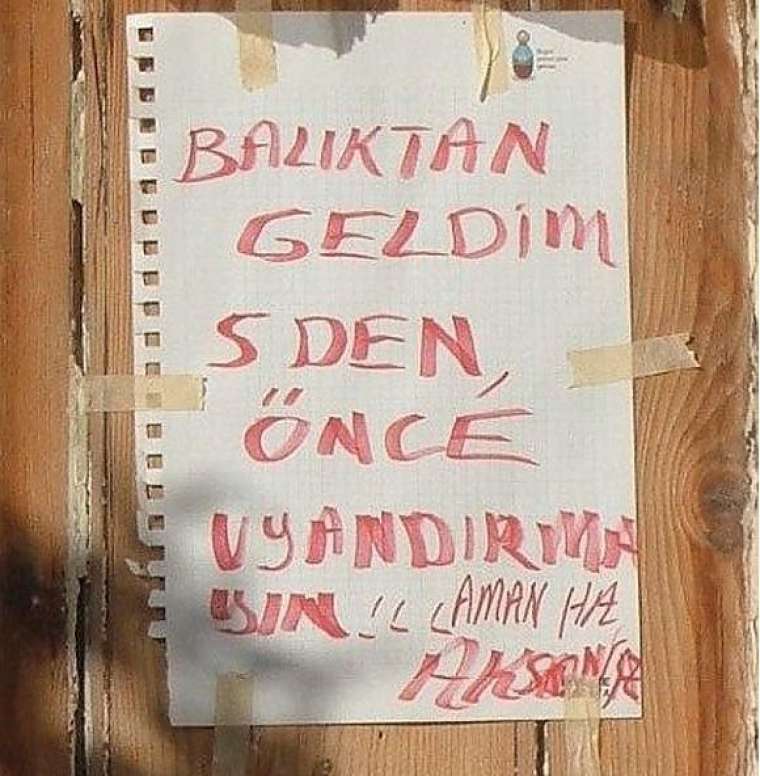 BALIKTAN
GELDİM
5 DEN
ÖNCE
UYANDIRMA
YIN !!! AMAN HA